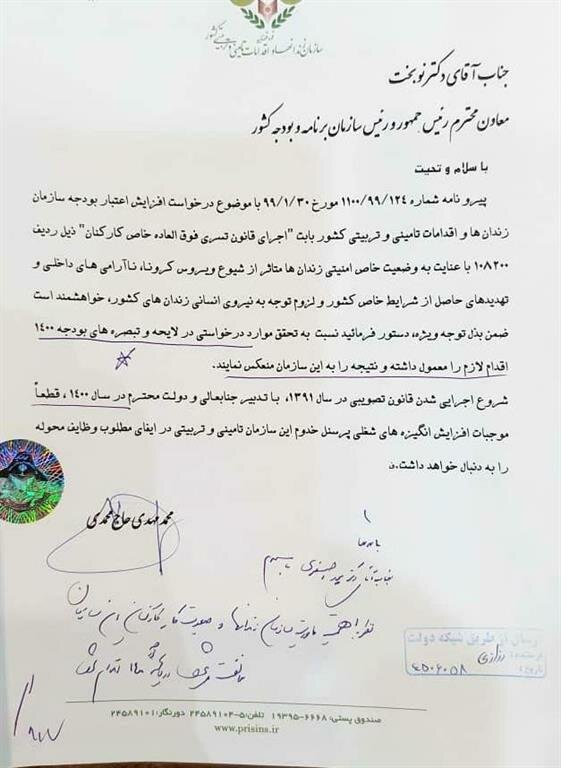 سازمان زندانها و اقدامات تامینی و تربیتی کشور
جناب آقای دکتر نوبخت
معاون محترم رئیس جمهور و رئیس سازمان برنامه و بودجه کشور
با سلام و تحیت
پیرو نامه شماره ۱۱۰۰/۹۹/۱۲۴ مورخ ۹۹/۱/۳۰ با موضوع درخواست افزایش اعتبار بودجه سازمان
زندان ها و اقدامات تامینی و تربیتی کشور بابت "اجرای قانون تسری فوق العاده خاص کارکنان" ذیل ردیف
۱۰۸۲۰۰ با عنایت به وضعیت خاص امنیتی زندان ها متاثر از شیوع ویروس کرونا، ناآرامی های داخلی و
تهدیدهای حاصل از شرایط خاص کشور و لزوم توجه به نیروی انسانی زندان های کشور، خواهشمند است
ضمن بذل توجه ویژه، دستور فرمائید نسبت به تحقق موارد درخواستی در لایحه و تبصره های بودجه ۱۴۰۰
اقدام لازم را معمول داشته و نتیجه را به این سازمان منعکس نمایند.
شروع اجرایی شدن قانون تصویبی در سال ۱۳۹۱، با تدبیر جنابعالی و دولت محترم در سال ۱۴۰۰، قطعاً
موجبات افزایش انگیزه های شغلی پرسنل خدوم این سازمان تامینی و تربیتی در ایفای مطلوب وظایف محوله
را به دنبال خواهد داشت.د
محمدمهدی حاج محمدی
ارسال از طریق شبکه دولت
صندوق پستی: ۶۶۶۸-۱۹۳۹۵ تلفن:۵-۲۴۵۸۹۱۰۴ دورنگار:۲۴۵۸۹۱۰۱
www.prisins.ir